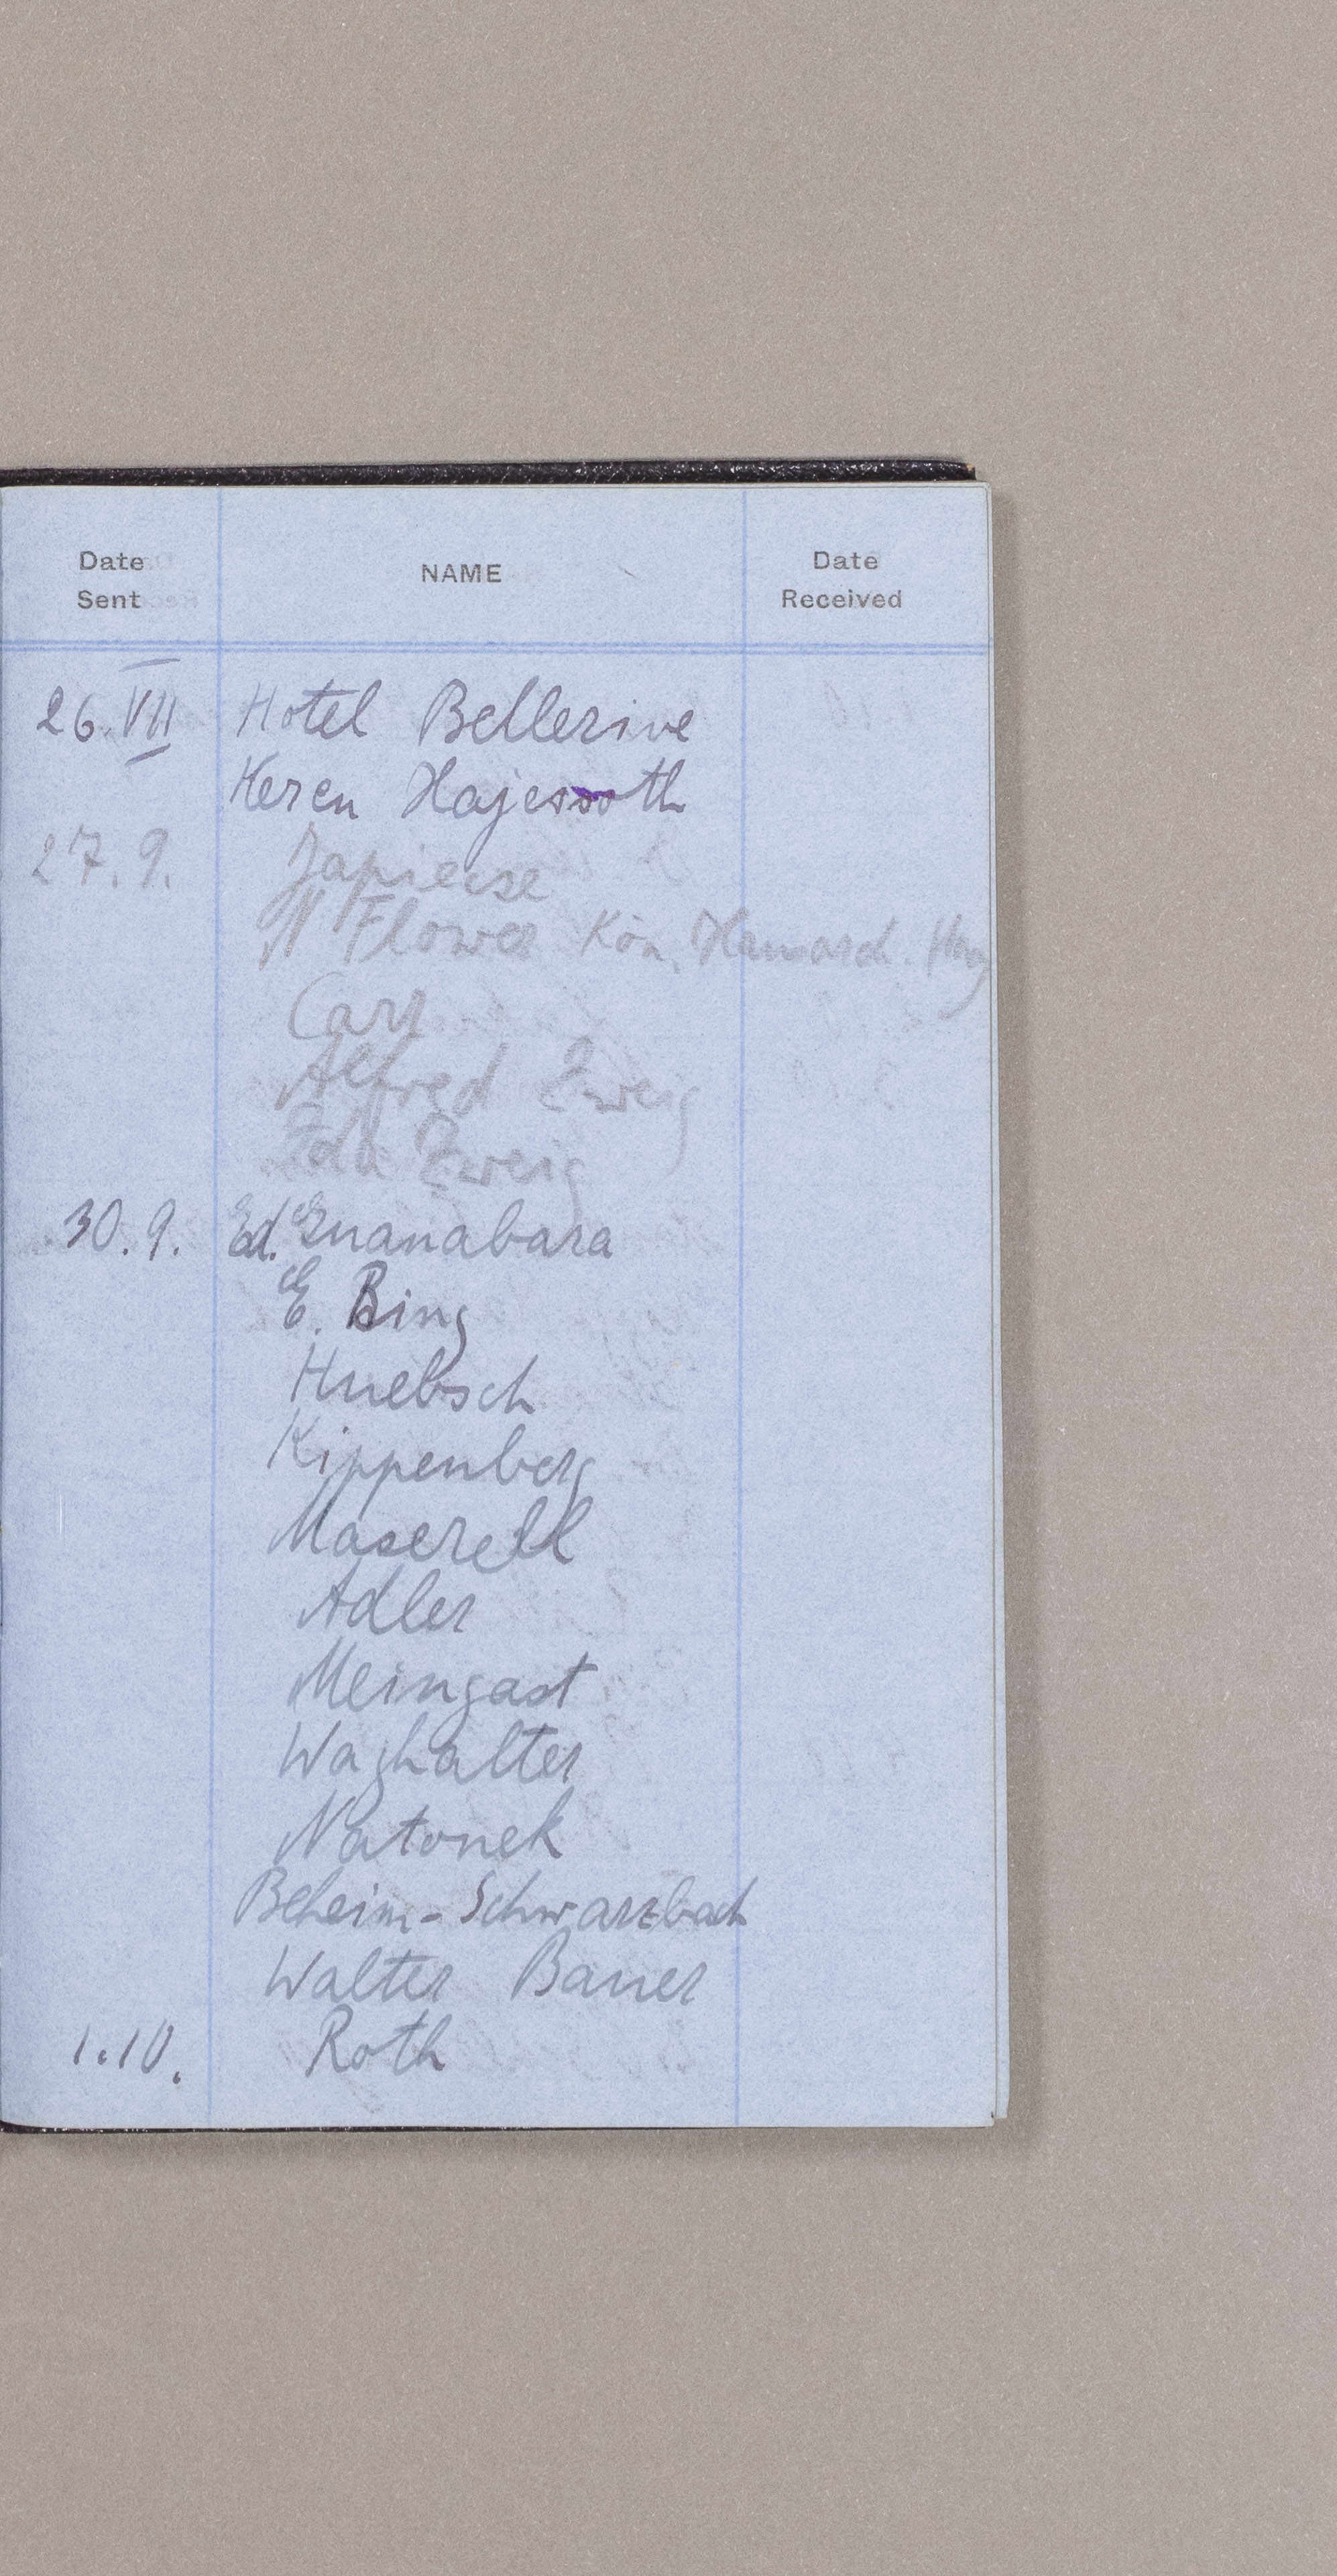 Date Sent NAME Date Received
26. VII Hotel Bellerive
Keren Hajessoth
27. 9.
Flower Kön.
Carr
Alfred Zweig
Ida Zweig
30. 9. Ed. Guanabara
E. Bing
Huebsch
Kippenberg
Maserell
Adler
Meingast
Waghalter
Natonek
Beheim-Schwarzbach
Walter Bauer
1. 10. Roth